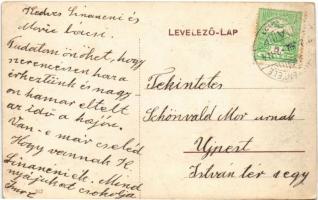 Kedves Linaneni és
Móric bácsi.
Tudatom önöket, hogy
szerencsésen haza
érkeztünk és nagy-
on hamar eltelt
az idő a hajón.
Van-e már cseléd
Hogy vannak
Linaneni és. Mind-
nyájukat csokolja
Imre
LEVELEZŐ-LAP
Tekintetes
Schönvald Mor urnak
Ujpest
István tér 1 egy